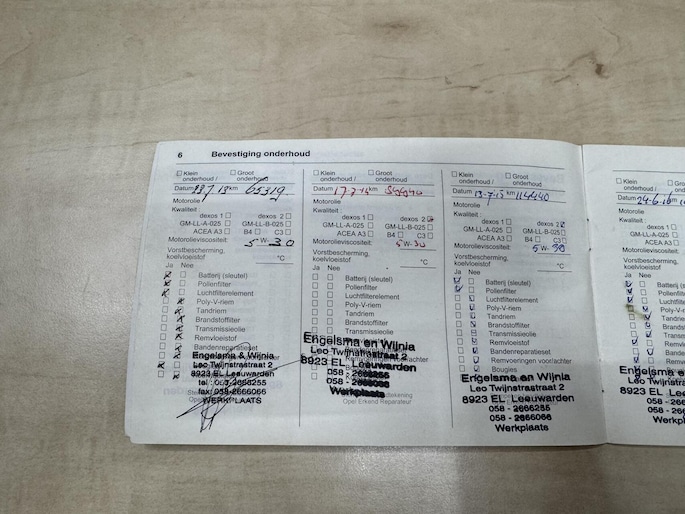 6 Bevestiging onderhoud
Klein onderhoud / Groot onderhoud
Datum km 65319
Motorolie
Kwaliteit :
dexos 1 dexos 2
GM-LL-A-025 GM-LL-B-025
ACEA A3 B4 C3
Motorolieviscositeit: 5 W-30
Vorstbescherming,
koelvloeistof °C
Ja Nee
Batterij (sleutel)
Pollenfilter
Luchtfilterelement
Poly-V-riem
Tandriem
Brandstoffilter
Transmissieolie
Remvloeistof
Bandenreparatieset
Engelsma & Wijnia
Leo Twijnstrastraat 2
8923 EL Leeuwarden
tel
fax 058-2666066
WERKPLAATS
Klein onderhoud / Groot onderhoud
Datum 17-7-14 km
Motorolie
Kwaliteit :
dexos 1 dexos 2
GM-LL-A-025 GM-LL-B-025
ACEA A3 B4 C3
Motorolieviscositeit: 5 W-30
Vorstbescherming,
koelvloeistof °C
Ja Nee
Batterij (sleutel)
Pollenfilter
Luchtfilterelement
Poly-V-riem
Tandriem
Brandstoffilter
Transmissieolie
Engelsma en Wijnia
Leo Twijnstrastraat 2
8923 EL Leeuwarden
058 -
058 -
Werkplaats
Opel Erkend Reparateur
Klein onderhoud / Groot onderhoud
Datum 13-7-15 km 114440
Motorolie
Kwaliteit :
dexos 1 dexos 2
GM-LL-A-025 GM-LL-B-025
ACEA A3 B4 C3
Motorolieviscositeit: 5 W-30
Vorstbescherming,
koelvloeistof °C
Ja Nee
Batterij (sleutel)
Pollenfilter
Luchtfilterelement
Poly-V-riem
Tandriem
Brandstoffilter
Transmissieolie
Remvloeistof
Bandenreparatieset
Remvoeringen voor/achter
Bougies
Engelsma en Wijnia
Leo Twijnstrastraat 2
8923 EL Leeuwarden
058 - 2666255
058 - 2666066
Werkplaats
Klein onderhoud /
Datum 24-6-16
Motorolie
Kwaliteit :
dexos 1
GM-LL-A-025
ACEA A3
Motorolieviscositeit:
Vorstbescherming,
koelvloeistof
Ja Nee
Batterij (sleutel)
Pollenfilter
Luchtfilterelement
Poly-V-riem
Tandriem
Brandstoffilter
Transmissieolie
Remvloeistof
Leo
8923 EL
058
058